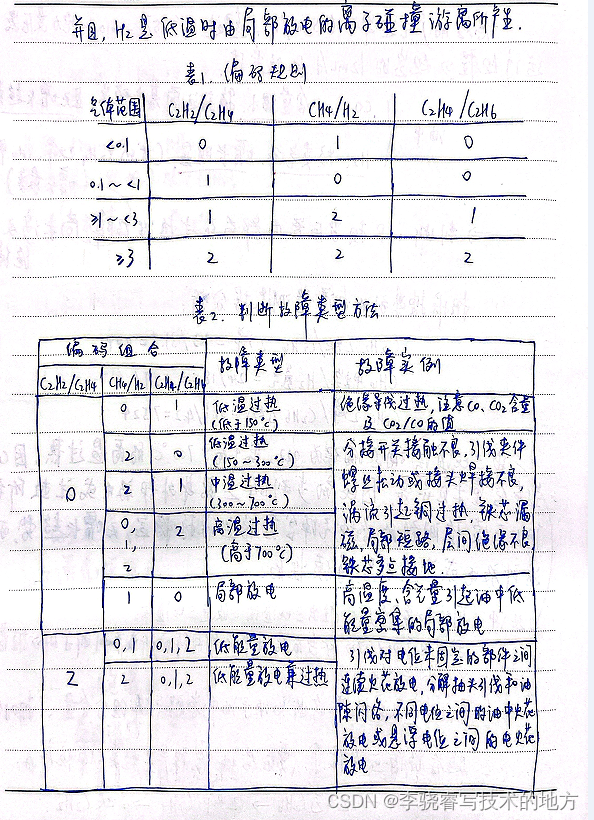 并且, H2是低温时由局部放电的离子碰撞游离所产生.
表1. 编码规则
气体范围 C2H2/C2H4 CH4/H2 C2H4/C2H6
<0.1 0 1 0
0.1~<1 1 0 0
≥1~<3 1 2 1
≥3 2 2 2
表2. 判断故障类型方法
编码组合 故障类型 故障实例
C2H2/C2H4 CH4/H2 C2H4/C2H6
0
0 1 低温过热
(低于150℃)
绝缘导线过热,注意CO、CO2含量
及CO2/CO的值
2 0 低温过热
(150~300℃)
2 1 中温过热
(300~700℃)
0,
1,
2
2 高温过热
(高于700℃)
分接开关接触不良,引线夹件
螺丝松动或接头焊接不良,
涡流引起铜过热,铁芯漏
磁,局部短路,层间绝缘不良,
铁芯多点接地.
1 0 局部放电
高湿度、含气量引起油中低
能量密集的局部放电
2
0,1 0,1,2 低能量放电
2 0,1,2 低能量放电兼过热
引线对电位未固定的部件之间
连续火花放电,分解抽头引线和油
隙闪络,不同电位之间的油中火花
放电或悬浮电位之间的电火花
放电
CSDN @李骁睿写技术的地方